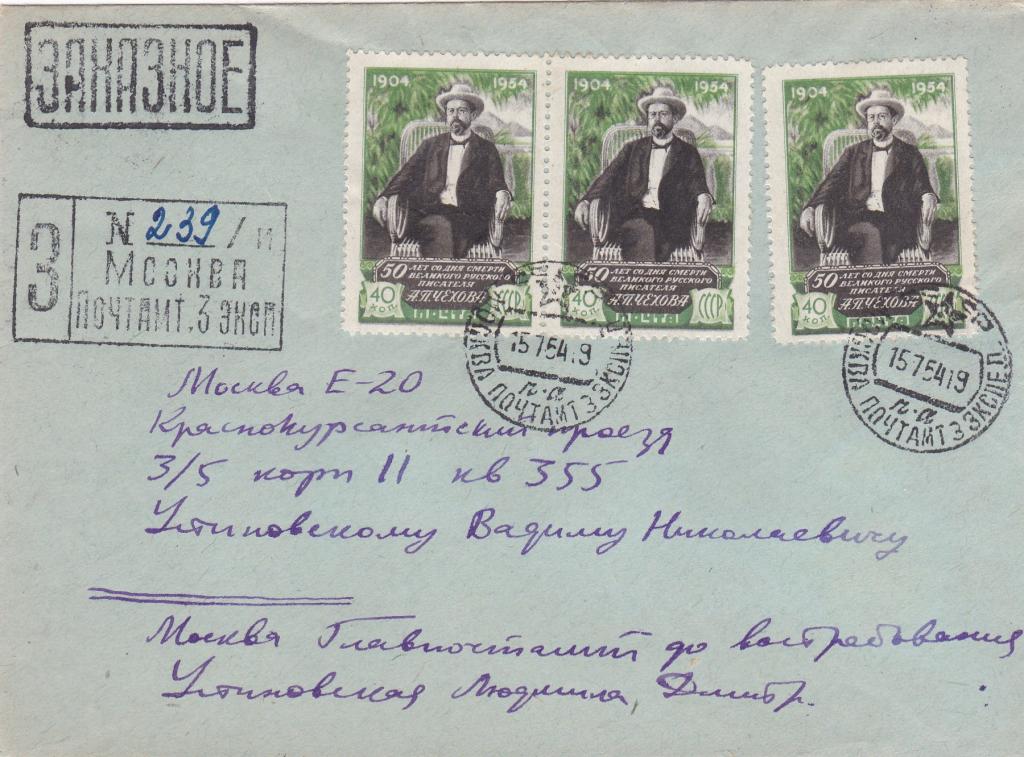 ЗАКАЗНОЕ
З
N 239 / н
Москва
Почтамт. 3 эксп
1904 1954
50 ЛЕТ СО ДНЯ СМЕРТИ
ВЕЛИКОГО РУССКОГО
ПИСАТЕЛЯ
А.П.ЧЕХОВА
40 КОП. ПОЧТА СССР
1904 1954
50 ЛЕТ СО ДНЯ СМЕРТИ
ВЕЛИКОГО РУССКОГО
ПИСАТЕЛЯ
А.П.ЧЕХОВА
40 КОП. ПОЧТА СССР
1904 1954
50 ЛЕТ СО ДНЯ СМЕРТИ
ВЕЛИКОГО РУССКОГО
ПИСАТЕЛЯ
А.П.ЧЕХОВА
40 КОП. ПОЧТА
МОСКВА ПОЧТАМТ 3 ЭКСПЕД.
15 7 54 19
п.а
МОСКВА ПОЧТАМТ 3 ЭКСПЕД.
15 7 54 19
п.а
Москва Е-20
Краснокурсантский проезд
3/5 корп II кв 355
Устиновскому Вадиму Николаевичу
Москва Главпочтамт до востребования
Устиновская Людмила Дмитр.